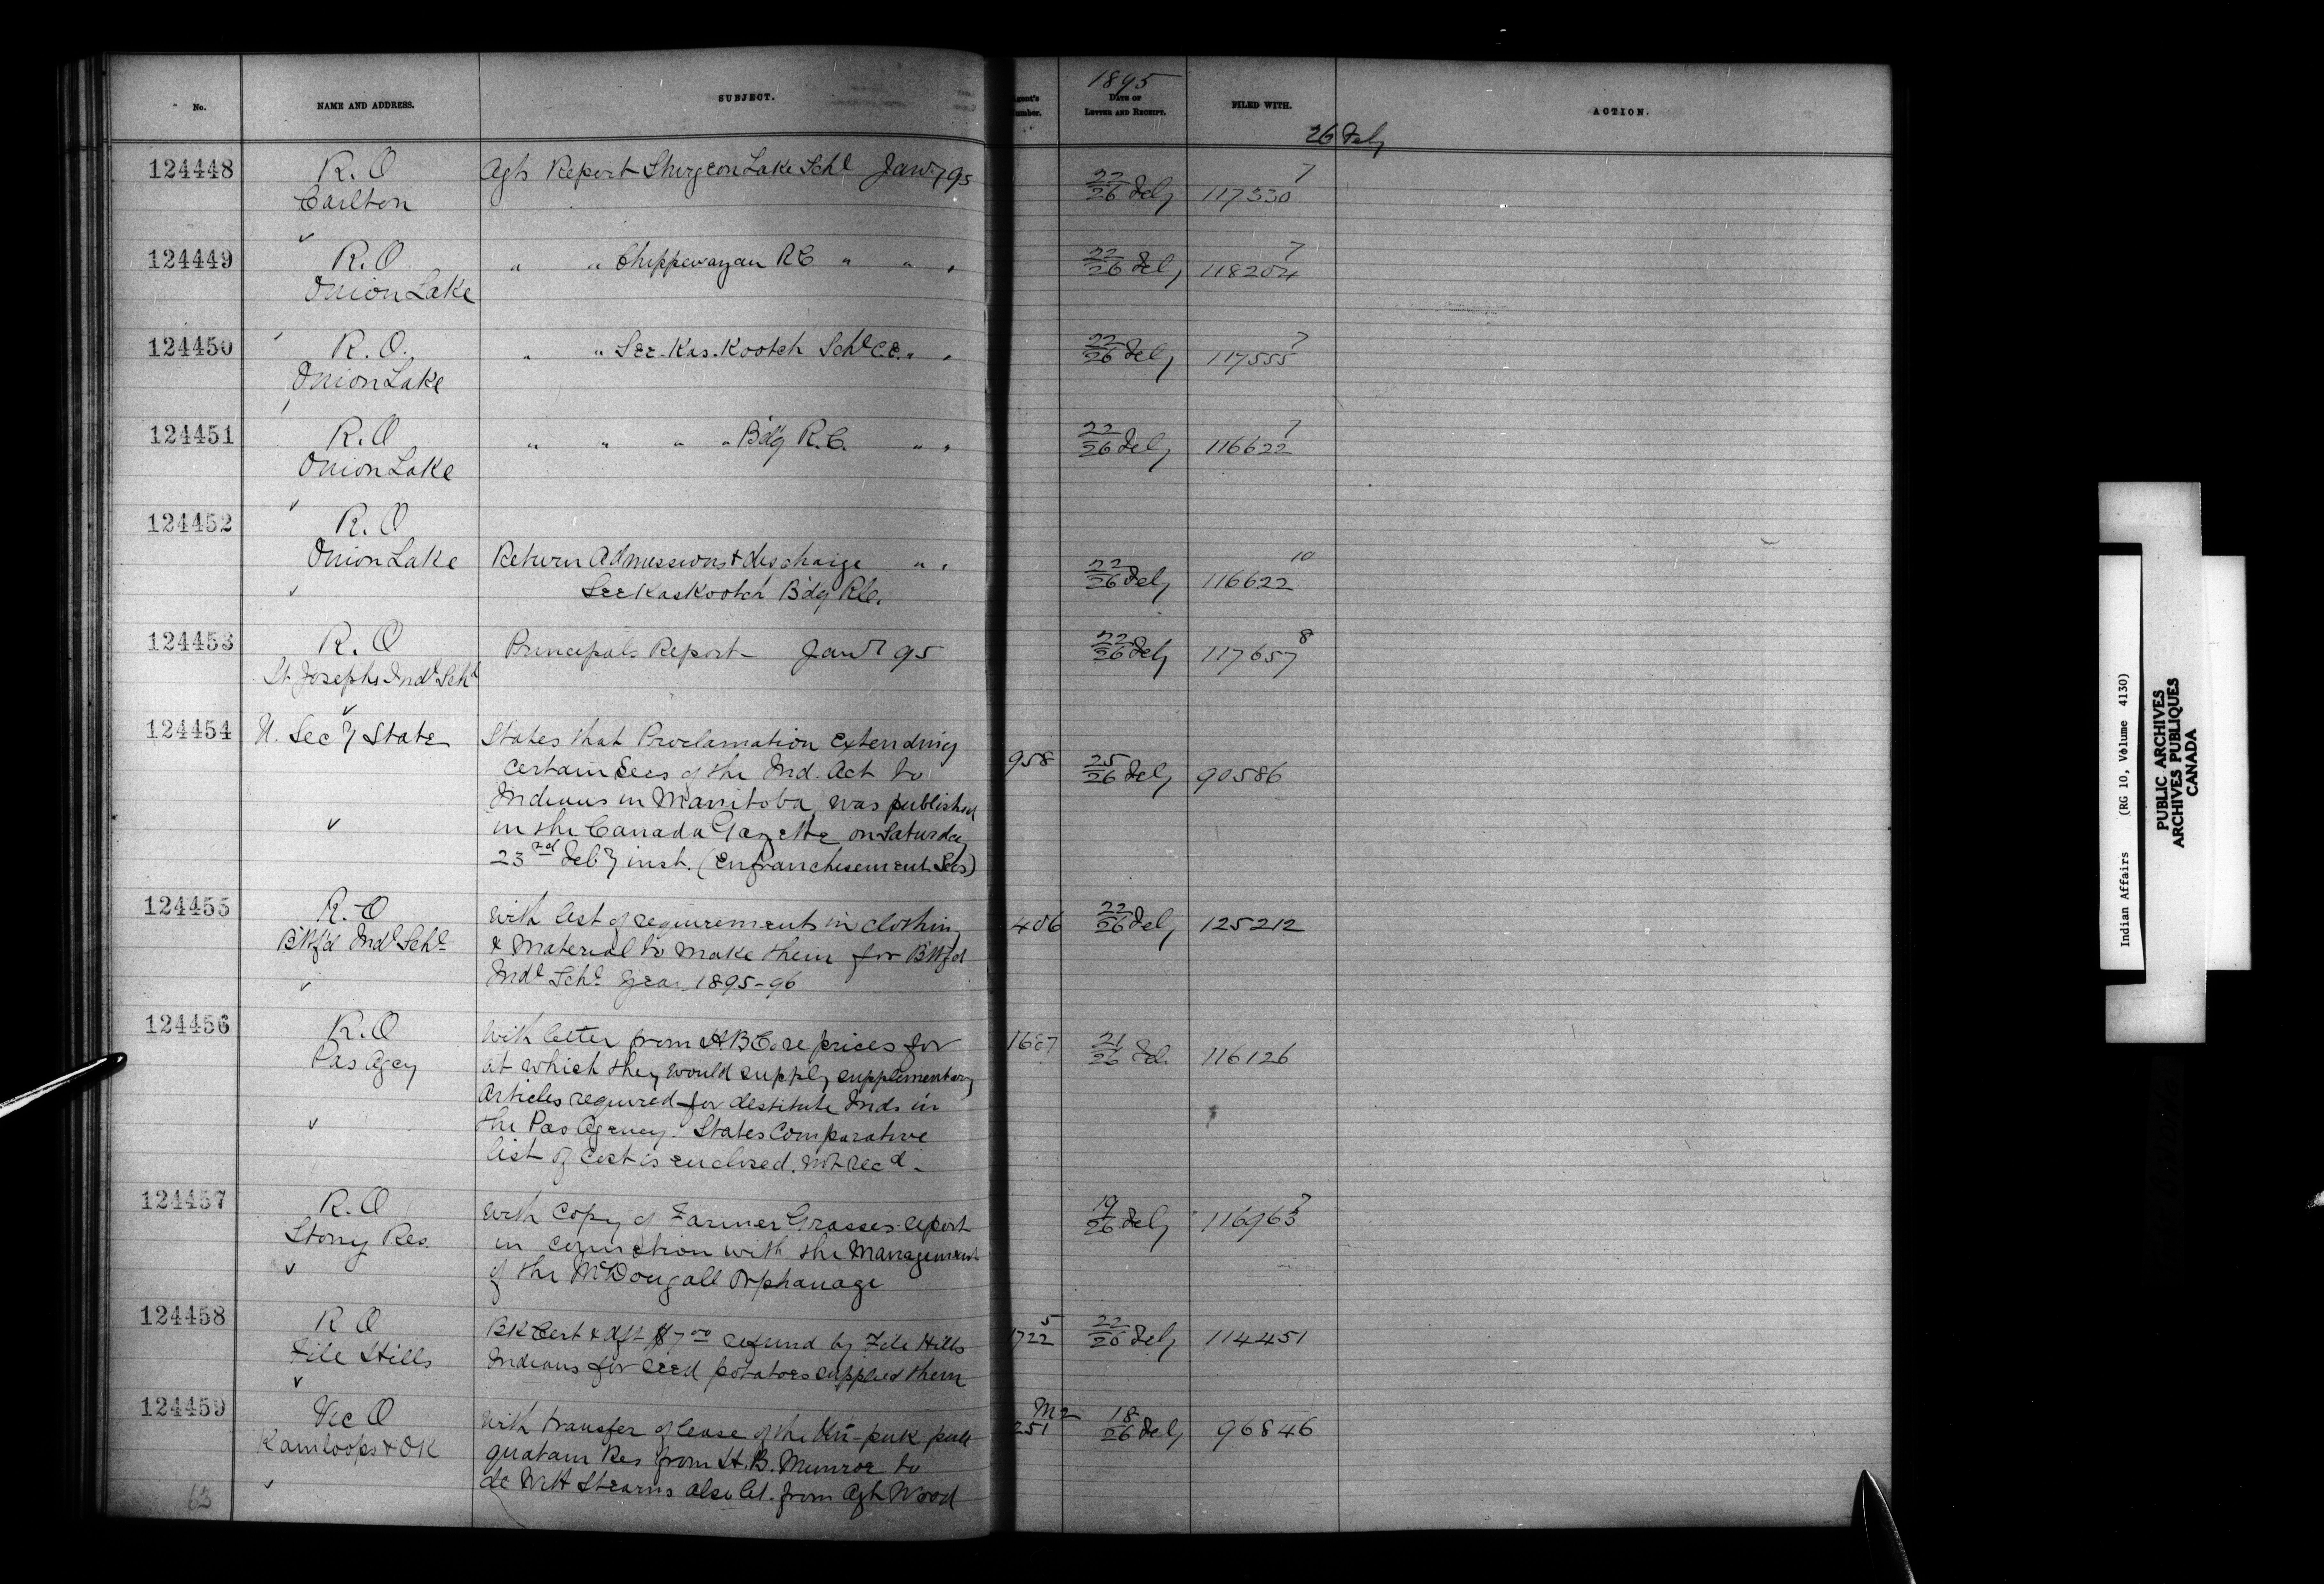 No. NAME AND ADDRESS. SUBJECT. Agent's Number. 1895 DATE OF LETTER AND RECEIPT. FILED WITH. ACTION.
26 Feby
124448 R.O Agts Report Sturgeon Lake Schl Jany 95 22/26 Feby 117330 7
Carlton
124449 R.O " " Chippewayan R.C " " " 22/26 Feby 118204 7
Onion Lake
124450 R.O. " " See.Kas.Kootch Schl C.E. " " 22/26 Feby 117555 7
Onion Lake
124451 R.O " " " " Bdg R.C. " " 22/26 Feby 116622 7
Onion Lake
124452 R.O
Onion Lake Return Admissions & discharge " " 22/26 Feby 116622 10
SeeKasKootch Bdg R.C.
124453 R.O Principals Report Jany 95 22/26 Feby 117657 8
St Josephs Indl Schl
124454 U. Secy State States that Proclamation extending
certain Secs of the Ind. Act to 958 25/26 Feby 90586
Indians in Manitoba, was published
in the Canada Gazette on Saturday
23rd Feby inst. (Enfranchisement Secs)
124455 R.O With list of requirements in clothing 406 22/26 Feby 125212
B'tf'd Indl Schl & Material to make them for B'tf'd
Indl Schl year 1895-96
124456 R.O With letter from H B Co. re prices for 1687 21/26 Feb. 116126
Pas Agcy at which they would supply supplementary
articles required for destitute Inds in
the Pas Agency. States Comparative
list of cost is enclosed. not recd.
124457 R.O With Copy of Farmer Grasses report 19/26 Feby 116963 7
Stony Res. in connection with the Management
of the McDougall Orphanage
124458 R O BK Cert & dft $7.00 refund by File Hills 5 1722 22/26 Feby 114451
File Hills Indians for seed potatoes supplied them
124459 Vic O With transfer of lease of the puk 251 18/26 Feby 96846
Kamloops & OK quatam Res from H.B. Munroe to
63 de Witt Stearns also let. from Agt Wood
Indian Affairs (RG 10, Volume 4130)
PUBLIC ARCHIVES
ARCHIVES PUBLIQUES
CANADA